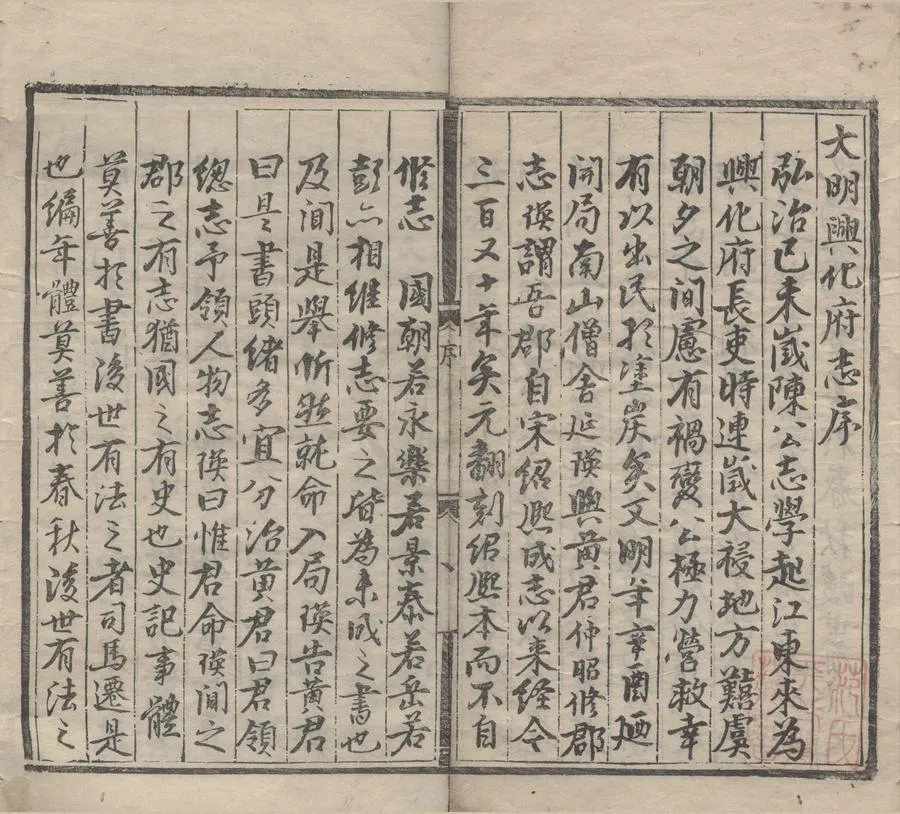 大明興化府志序
弘治己未歲陳公志學起江東來為
興化府長吏時連歲大祲地方囏虞
朝夕之間慮有禍變公極力營救幸
有以出民於塗炭矣又明年辛酉廼
開局南山僧舍延瑛與黃君仲昭修郡
志瑛謂吾郡自宋紹熙成志以來經今
三百又十年矣元翻刻紹熙本而不自
修志 國朝若永樂若景泰若岳若
彭亦相維修志要之皆為未成之書也
及聞是舉忻然就命入局瑛告黃君
曰是書頭緒多宜分治黃君曰君領
總志予領人物志瑛曰惟君命瑛聞之
郡之有志猶國之有史也史記事體
莫善於書後世有法之者司馬遷是
也編年體莫善於春秋後世有法之
序